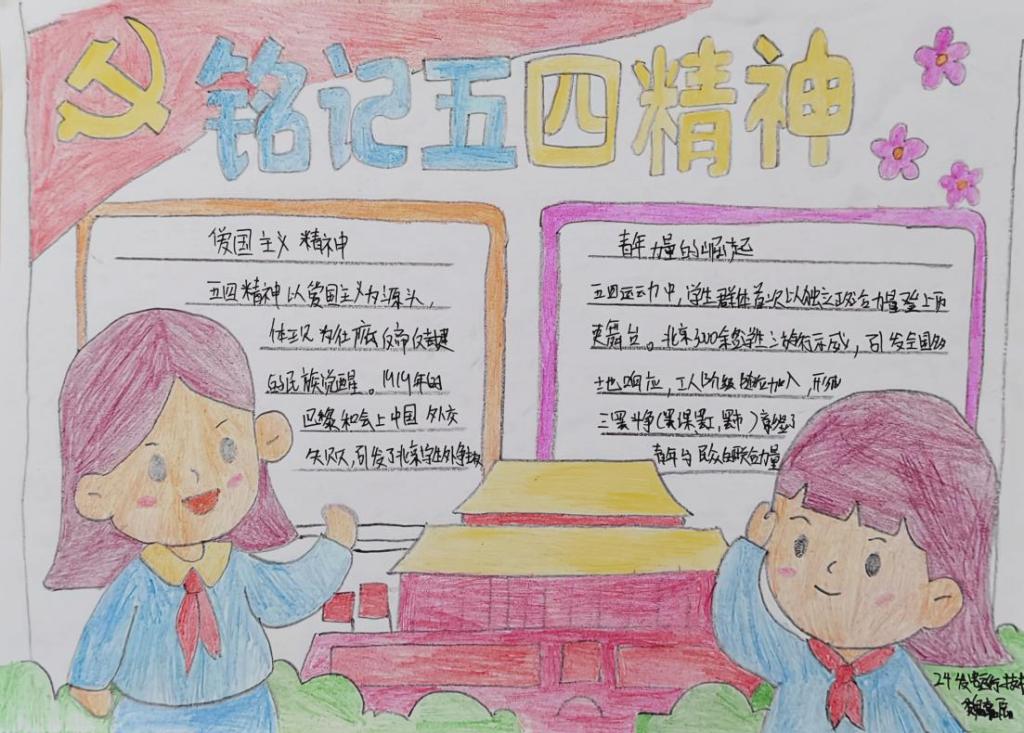 铭记五四精神
爱国主义精神
五四精神以爱国主义为源头,
体现为彻底反帝反封建
的民族觉醒。1919年的
巴黎和会上中国外交
失败,引发了北京学生外争主权
青年力量的崛起
五四运动中,学生群体首次以独立政治力量登上历
史舞台。北京3000余名学生游行示威,引发全国多
地响应,工人阶级随后加入,形成
三罢斗争(罢课罢工,罢市)彰显了
青年与民众的联合力量
24发电运行技术